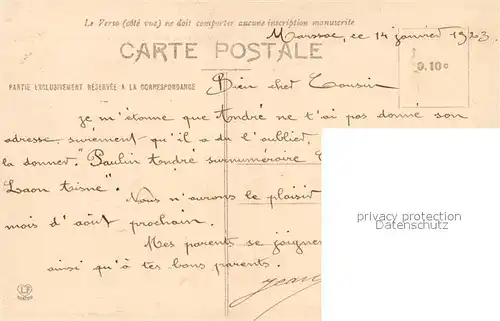 Le Verso (côté vue) ne doit comporter aucune inscription manuscrite
Marssac, ce 14 janvier 1923.
CARTE POSTALE
0.10c
PARTIE EXCLUSIVEMENT RÉSERVÉE A LA CORRESPONDANCE
Bien cher Cousin
je m'étonne que André ne t'ai pas donné son
adresse, surément qu'il a du l'oublier,
la donner. "Paulin André surnuméraire
Laon Aisne".
Nous n'aurons le plaisir
mois d'août prochain.
Mes parents se joignen
ainsi qu'à tes bons parents.
privacy protection
Datenschutz
LF